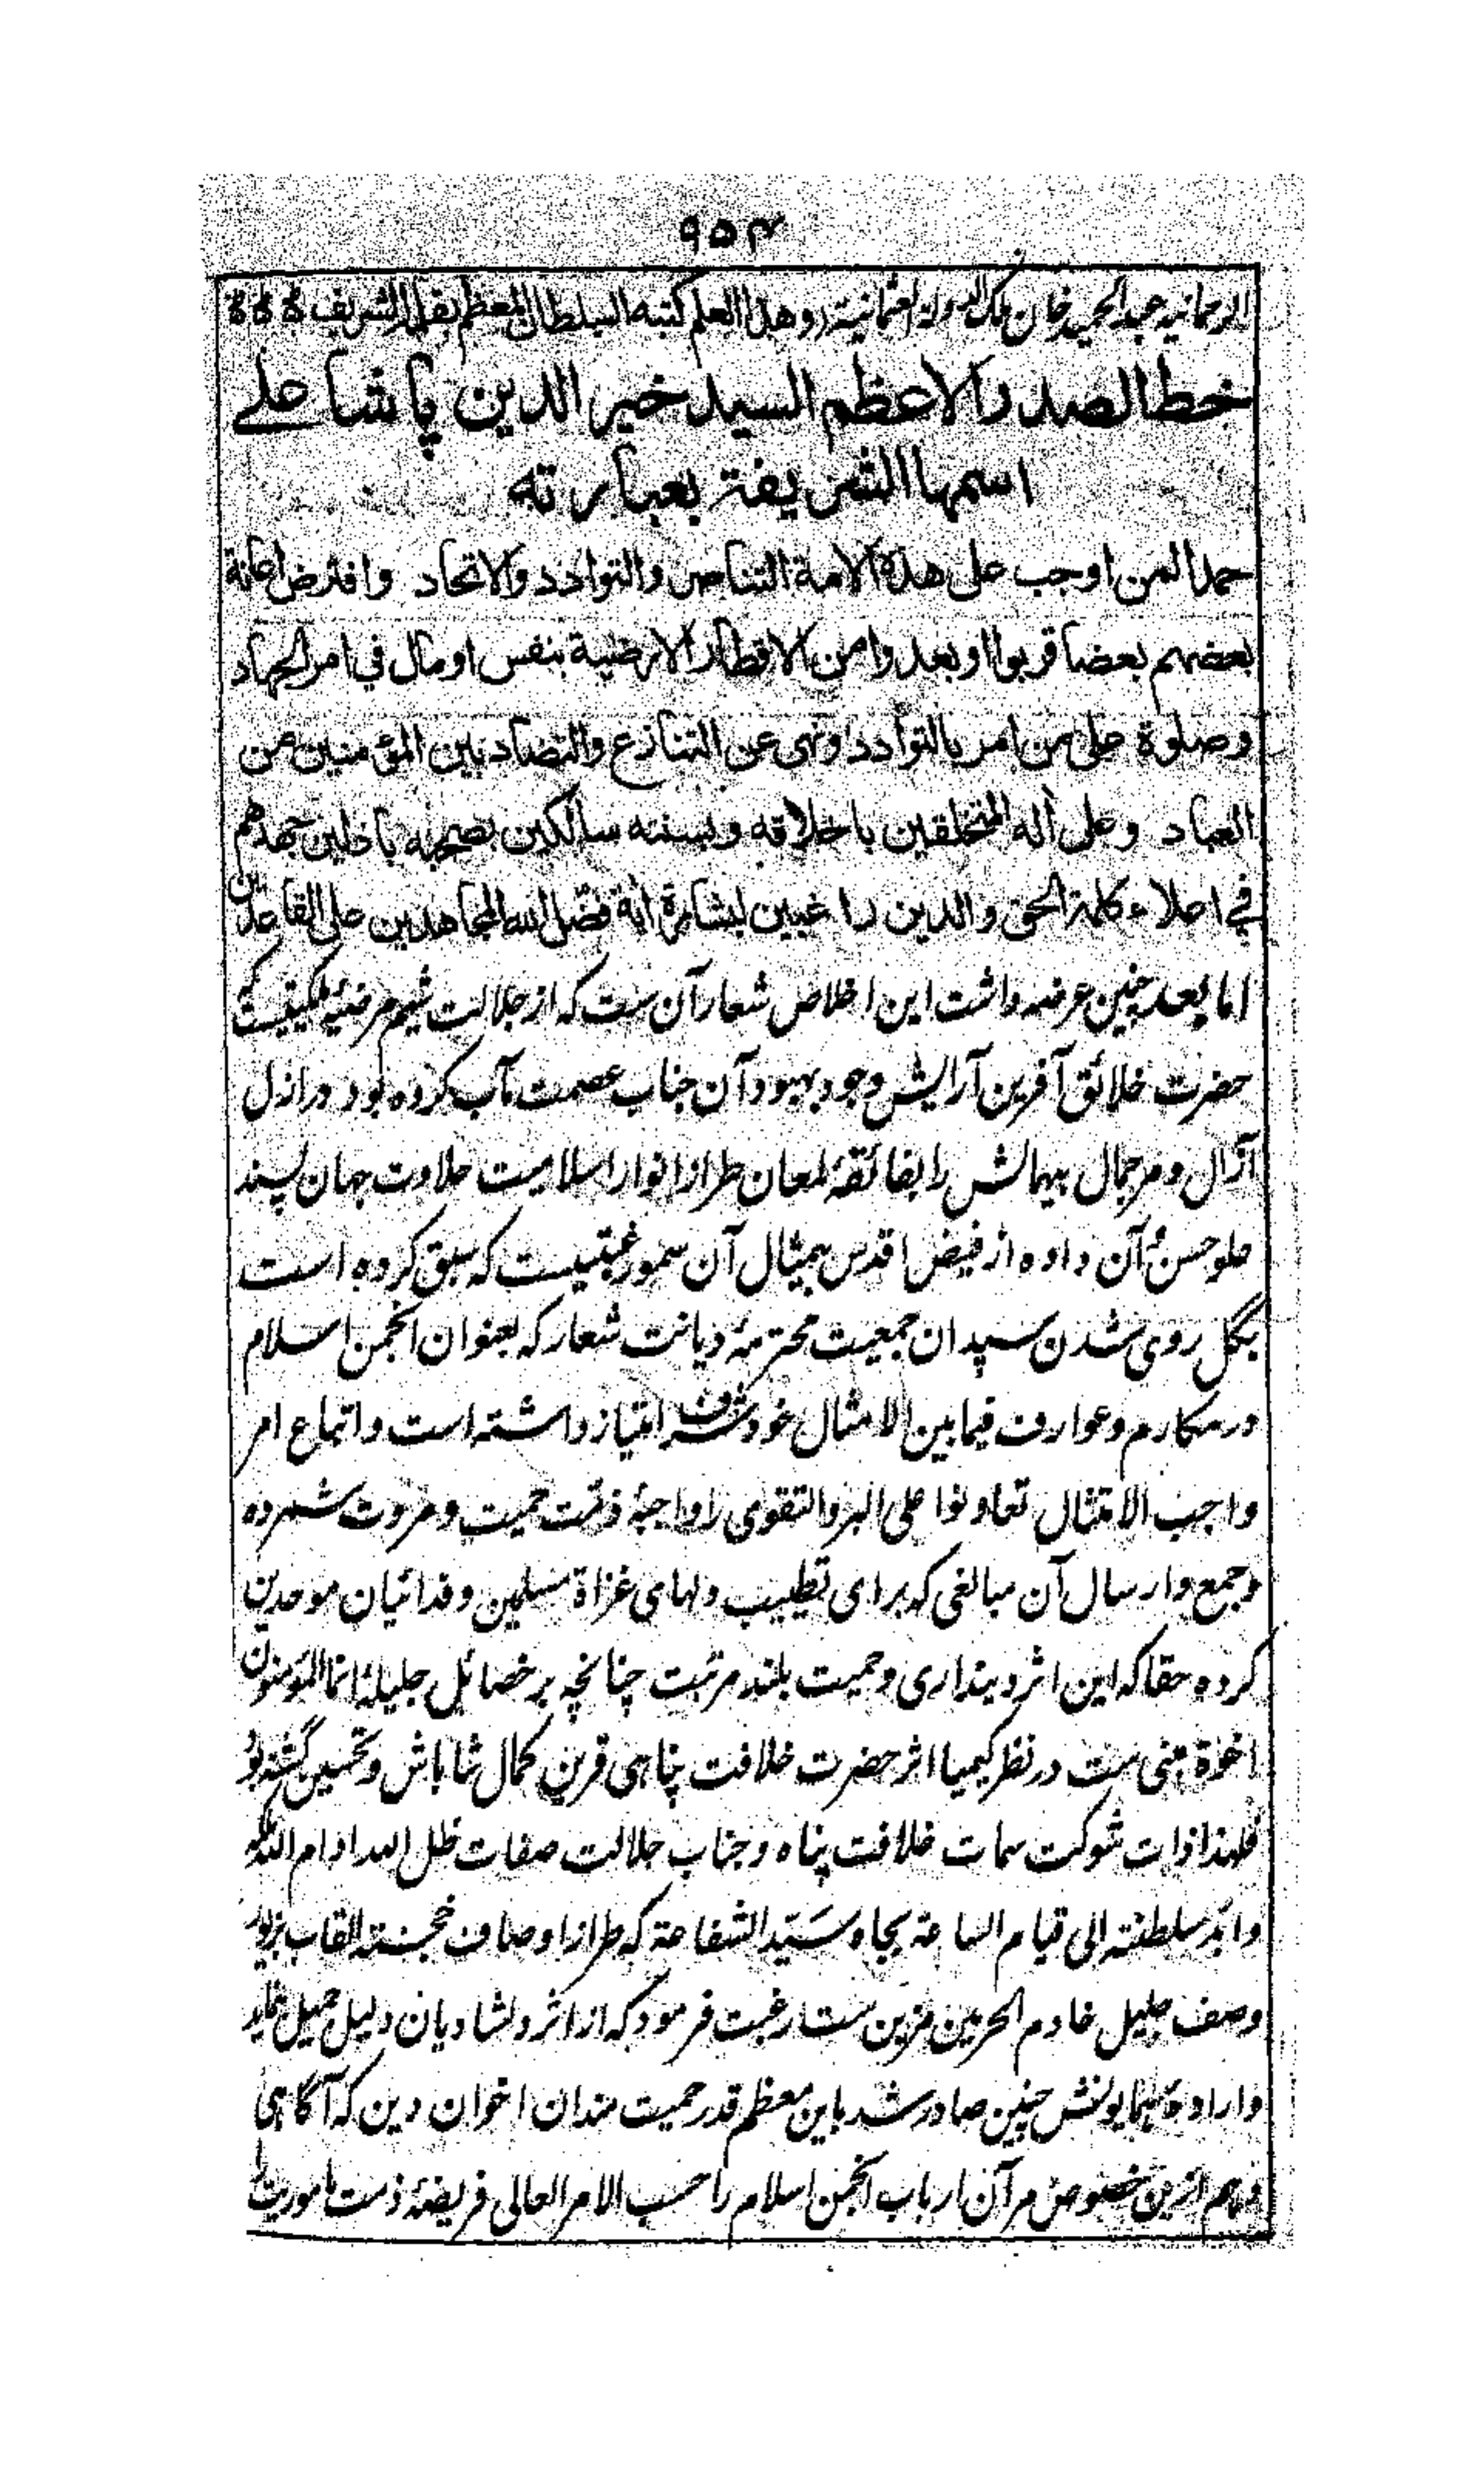 ۹۵۴
الرحمانيه عبد الحميد خان ملك الدولة العثمانية وهذا العلم كتبه السلطان المعظم بقلمه الشريف
خط الصدر الاعظم السيد خير الدين پاشا على
اسمها الشريفة بعبارته
حمدا لمن اوجب على هذه الامة التناصر والتوادد والاتحاد وافترض اعانة
بعضهم بعضا قربوا او بعدوا من الاقطار الارضية بنفس او مال في امر الجهاد
وصلوة على من امر بالتوادد ونهى عن التنازع والتضاد بين المؤمنين من
العباد وعلى آله المتخلقين باخلاقه وبسنته سالكين بصحبه باذلين جهدهم
في اعلاء كلمة الحق والدين راغبين لبشارة آية فضل الله المجاهدين على القاعدين
اما بعد چنين عرضه داشت اين اخلاص شعار آن ست كه از جلالت شيم مرضيه
حضرت خلائق آفرين آرايش وجود بهبود آن جناب عصمت مآب كرده بود در ازل
آزال و مر جمال بيهمالش را بفائقۀ لمعان طراز انوار اسلاميت حلاوت جهان پسند
علو حسن آن داده از فيض اقدس بيمثال آن كه سبق كرده است
بگل روى شدن سپيدان جمعيت محترمۀ ديانت شعار كه بعنوان انجمن اسلام
در مكارم وعوارف فيما بين الامثال خود شرف امتياز داشته است و امر
واجب الامتثال تعاونوا على البر والتقوى را واجبۀ ذمت حميت ومروت شمرده
وجمع وارسال آن مبالغى كه براى تطييب دلهاى غزاة مسلمين وفدائيان موحدين
كرده حقا كه اين اثر ديندارى وحميت بلند مرتبت چنانچه بر خصائل جليلۀ انما المؤمنون
اخوة مبنى ست در نظر كيميا اثر حضرت خلافت پناهى قرين كمال شاباش وتحسين
فلهذا ذات شوكت سمات خلافت پناه وجناب جلالت صفات ظل الله ادام الله
وابد سلطنته الى قيام الساعة بجاه سيد الشفاعة كه طراز اوصاف خجسته القاب
وصف جليل خادم الحرمين مزين ست رغبت فرمود كه از اثر دلشاديان دليل جميل
وارادۀ همايونش چنين صادر شد باين معظم قدر حميت مندان اخوان دين كه آگاهى
وهم ازين خصوص مر آن ارباب انجمن اسلام را حسب الامر العالى فريضۀ ذمت ماموريت